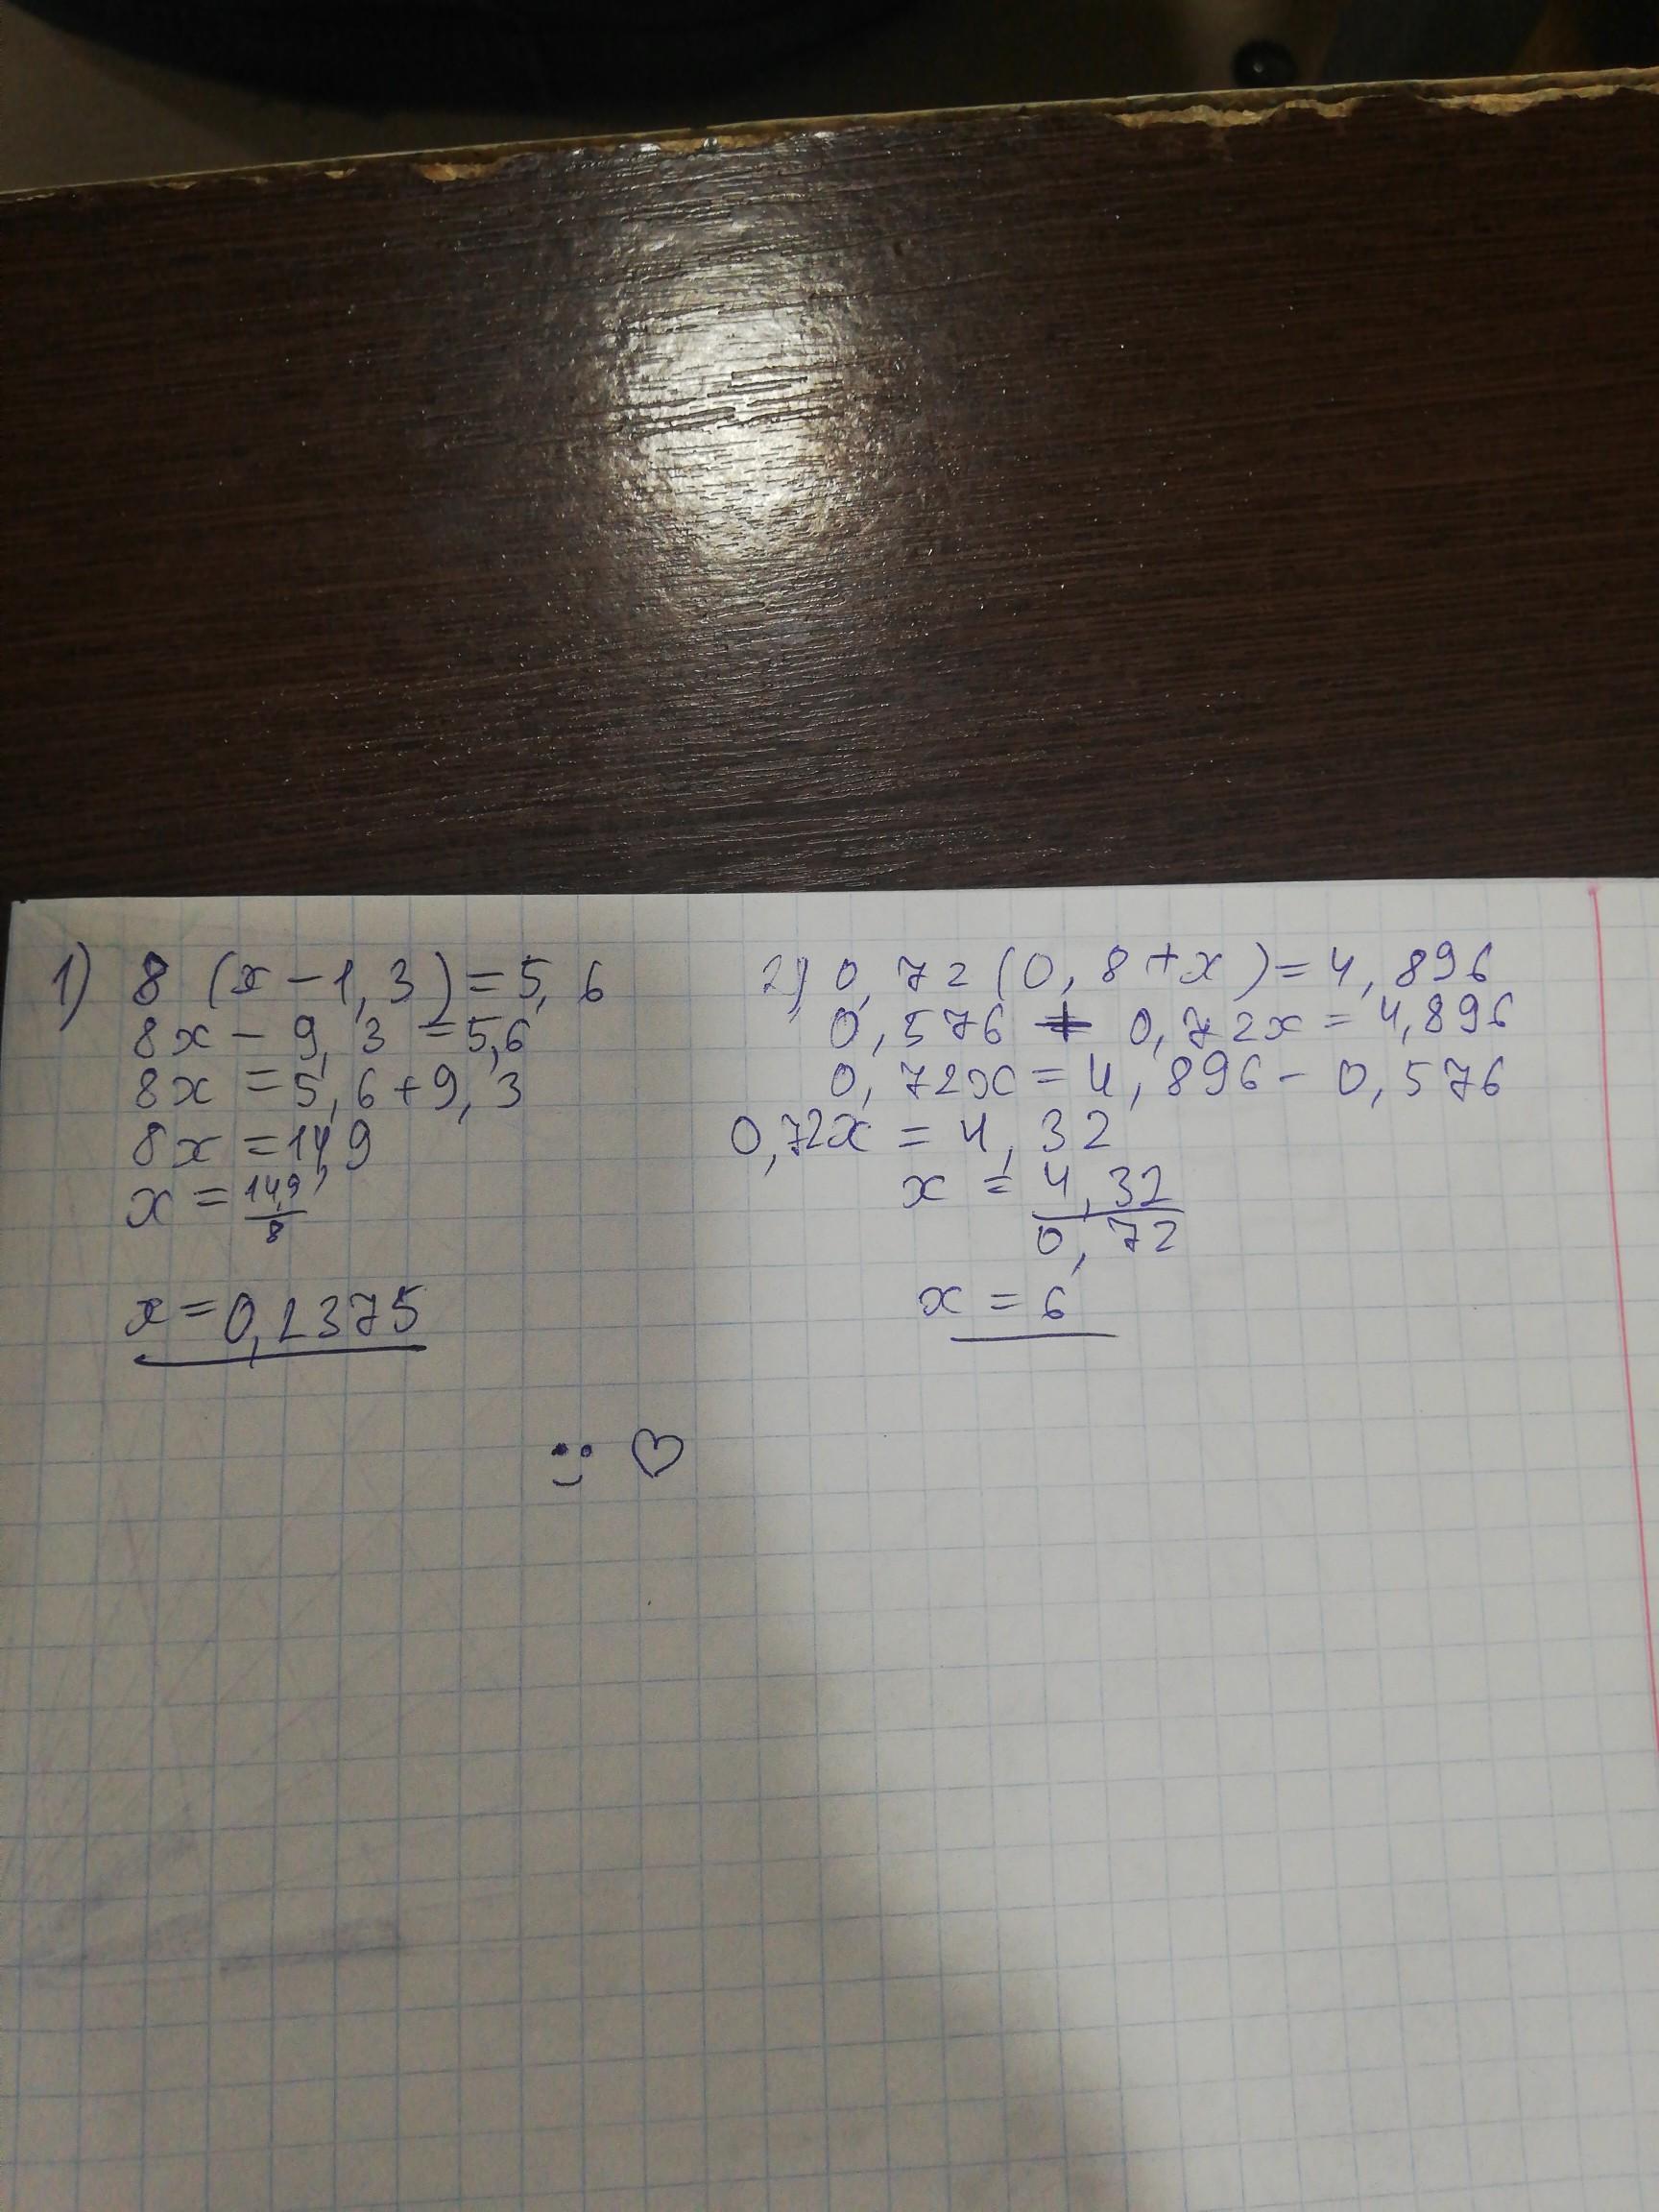 1) 8 (x - 1,3) = 5,6
8x - 9,3 = 5,6
8x = 5,6 + 9,3
8x = 14,9
x = 14,9/8
x = 0,2375
2) 0,72 (0,8 + x) = 4,896
0,576 + 0,72x = 4,896
0,72x = 4,896 - 0,576
0,72x = 4,32
x = 4,32/0,72
x = 6